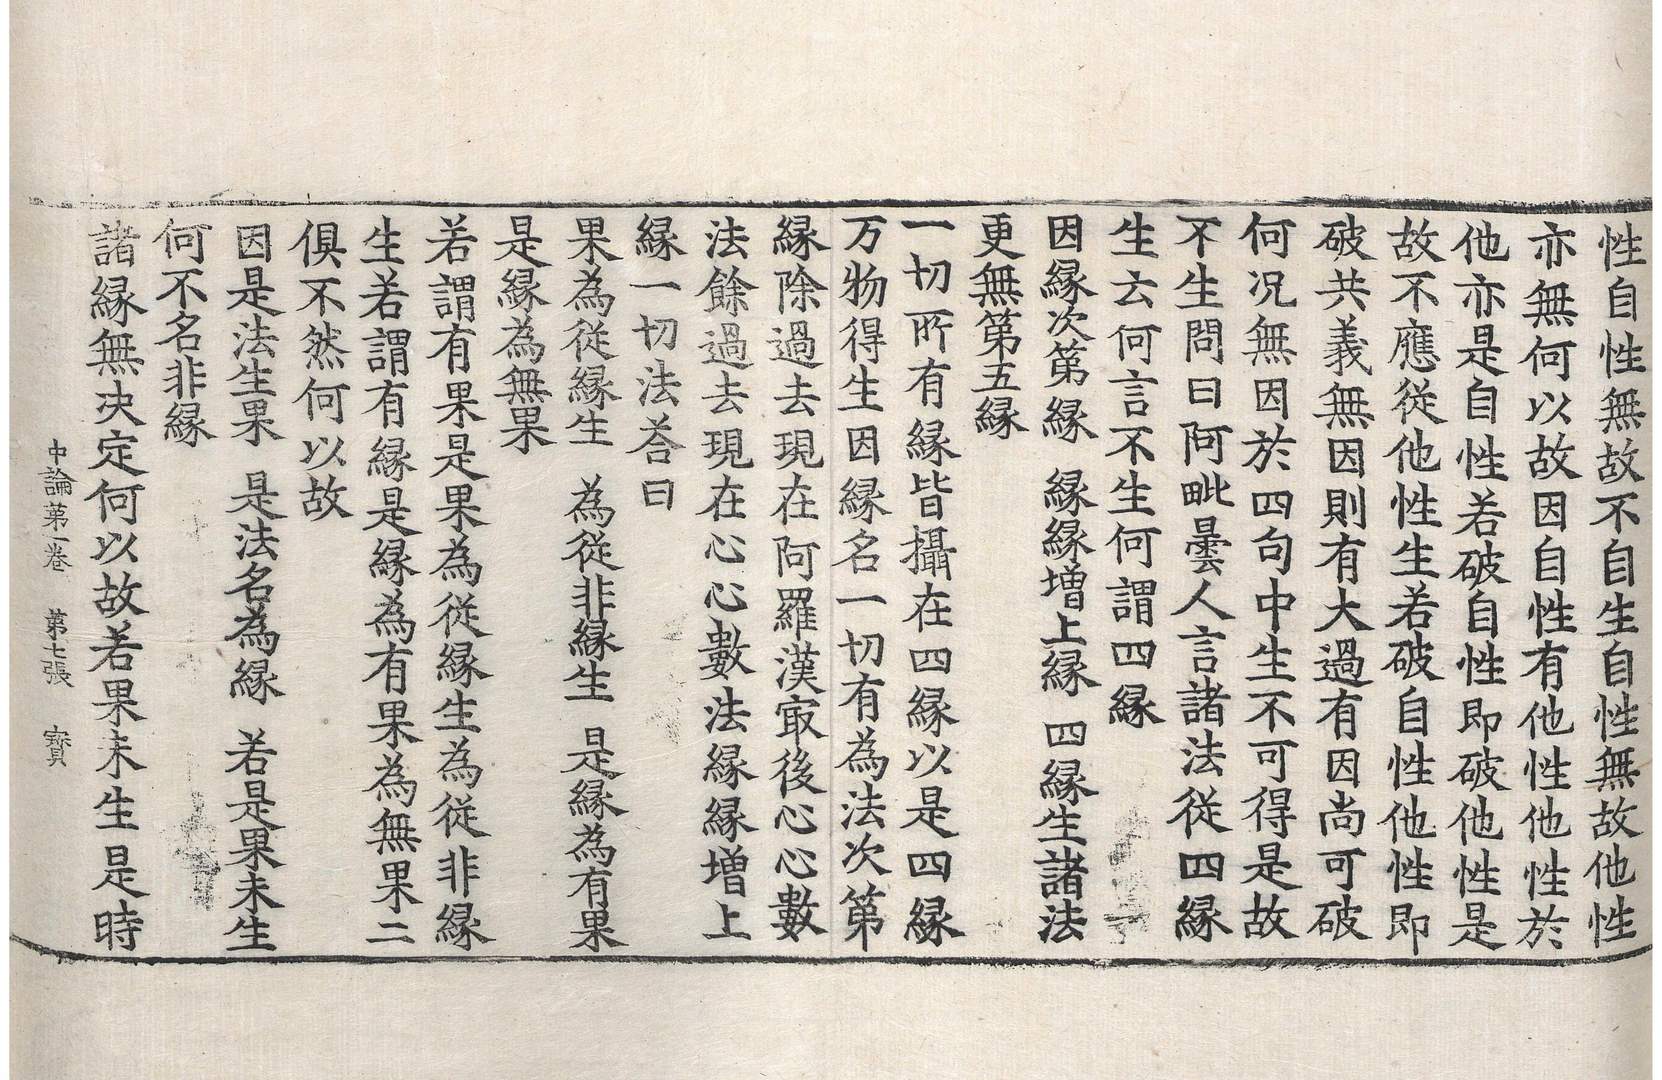 性自性無故不自生自性無故他性
亦無何以故因自性有他性他性於
他亦是自性若破自性即破他性是
故不應從他性生若破自性他性即
破共義無因則有大過有因尚可破
何况無因於四句中生不可得是故
不生問曰阿毗曇人言諸法從四縁
生云何言不生何謂四縁
因縁次第縁　縁縁增上縁　四縁生諸法
更無第五縁
一切所有縁皆攝在四縁以是四縁
万物得生因縁名一切有為法次第
縁除過去現在阿羅漢㝡後心心數
法餘過去現在心心數法縁縁增上
縁一切法荅曰
果為從縁生　為從非縁生　是縁為有果
是縁為無果
若謂有果是果為從縁生為從非縁
生若謂有縁是縁為有果為無果二
俱不然何以故
因是法生果　是法名為縁　若是果未生
何不名非縁
諸縁無决定何以故若果未生是時
中論第一卷　第七張　寳